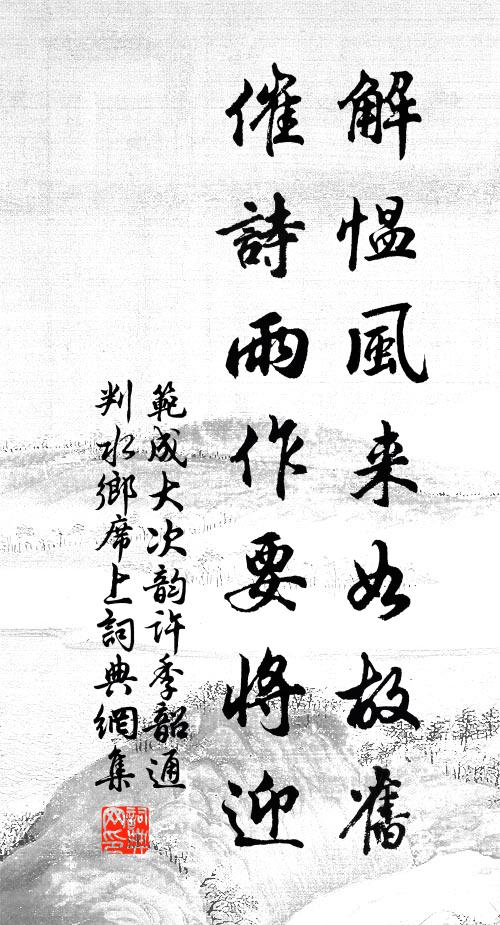 解愠風来如故舊
催詩雨作要將迎
範成大次韵許季韶通
判水鄉席上詞典網集